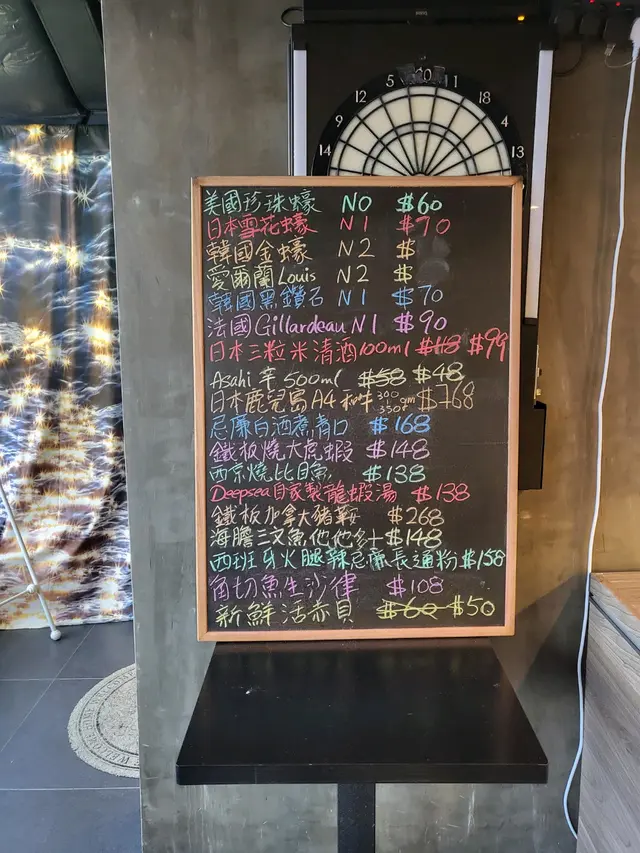 5 20 11
12 18
9 4
14 13
美國珍珠蠔 NO $60
日本雪花蠔 N1 $70
韓國金蠔 N2 $
愛爾蘭Louis N2 $
韓國黑鑽石 N1 $70
法國Gillardeau N1 $90
日本三粒米清酒100ml $118 $99
Asahi 辛 500ml $58 $48
日本鹿兒島A4和牛 300 350 gm $768
忌廉白酒煮青口 $168
鐵板燒大虎蝦 $148
西京燒比目魚 $138
Deepsea自家製龍蝦湯 $138
鐵板加拿大豬鞍 $268
海膽三文魚他他多士 $148
西班牙火腿辣忌廉長通粉 $158
角切魚生沙律 $108
新鮮活赤貝 $60 $50